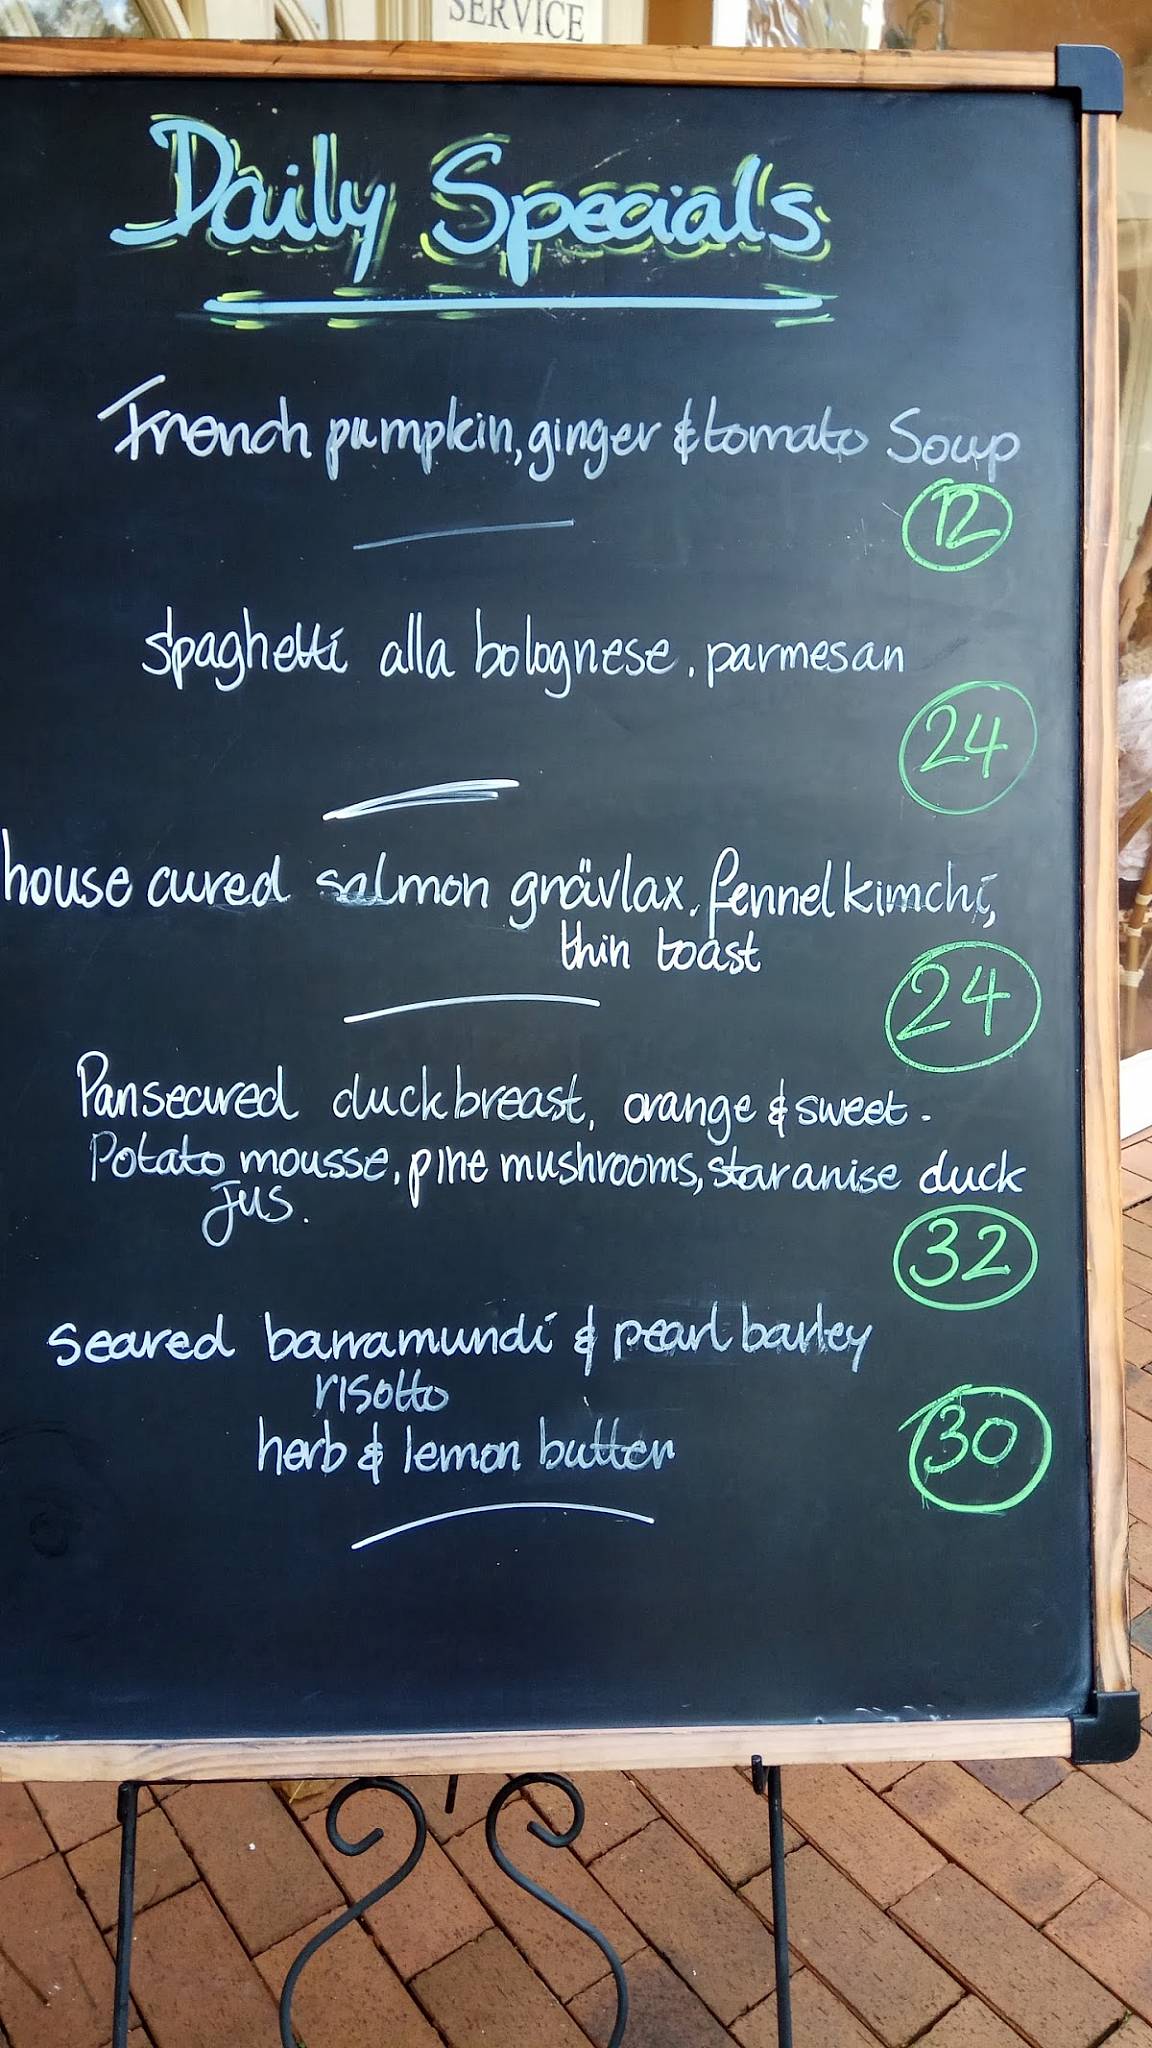 SERVICE
Daily Specials
French pumpkin, ginger & tomato Soup
12
spaghetti alla bolognese, parmesan
24
house cured salmon grävlax, fennel kimchi,
thin toast
24
Pan seared duck breast, orange & sweet -
Potato mousse, pine mushrooms, star anise duck
jus.
32
seared barramundi & pearl barley
risotto
herb & lemon butter
30